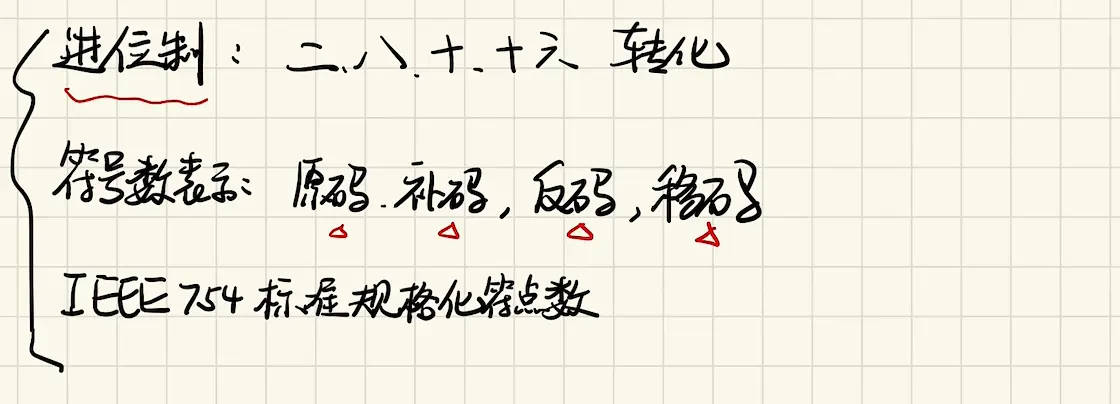 进位制：二、八、十、十六 转化
符号数表示：原码、补码，反码，移码
IEEE 754 标准规格化符点数